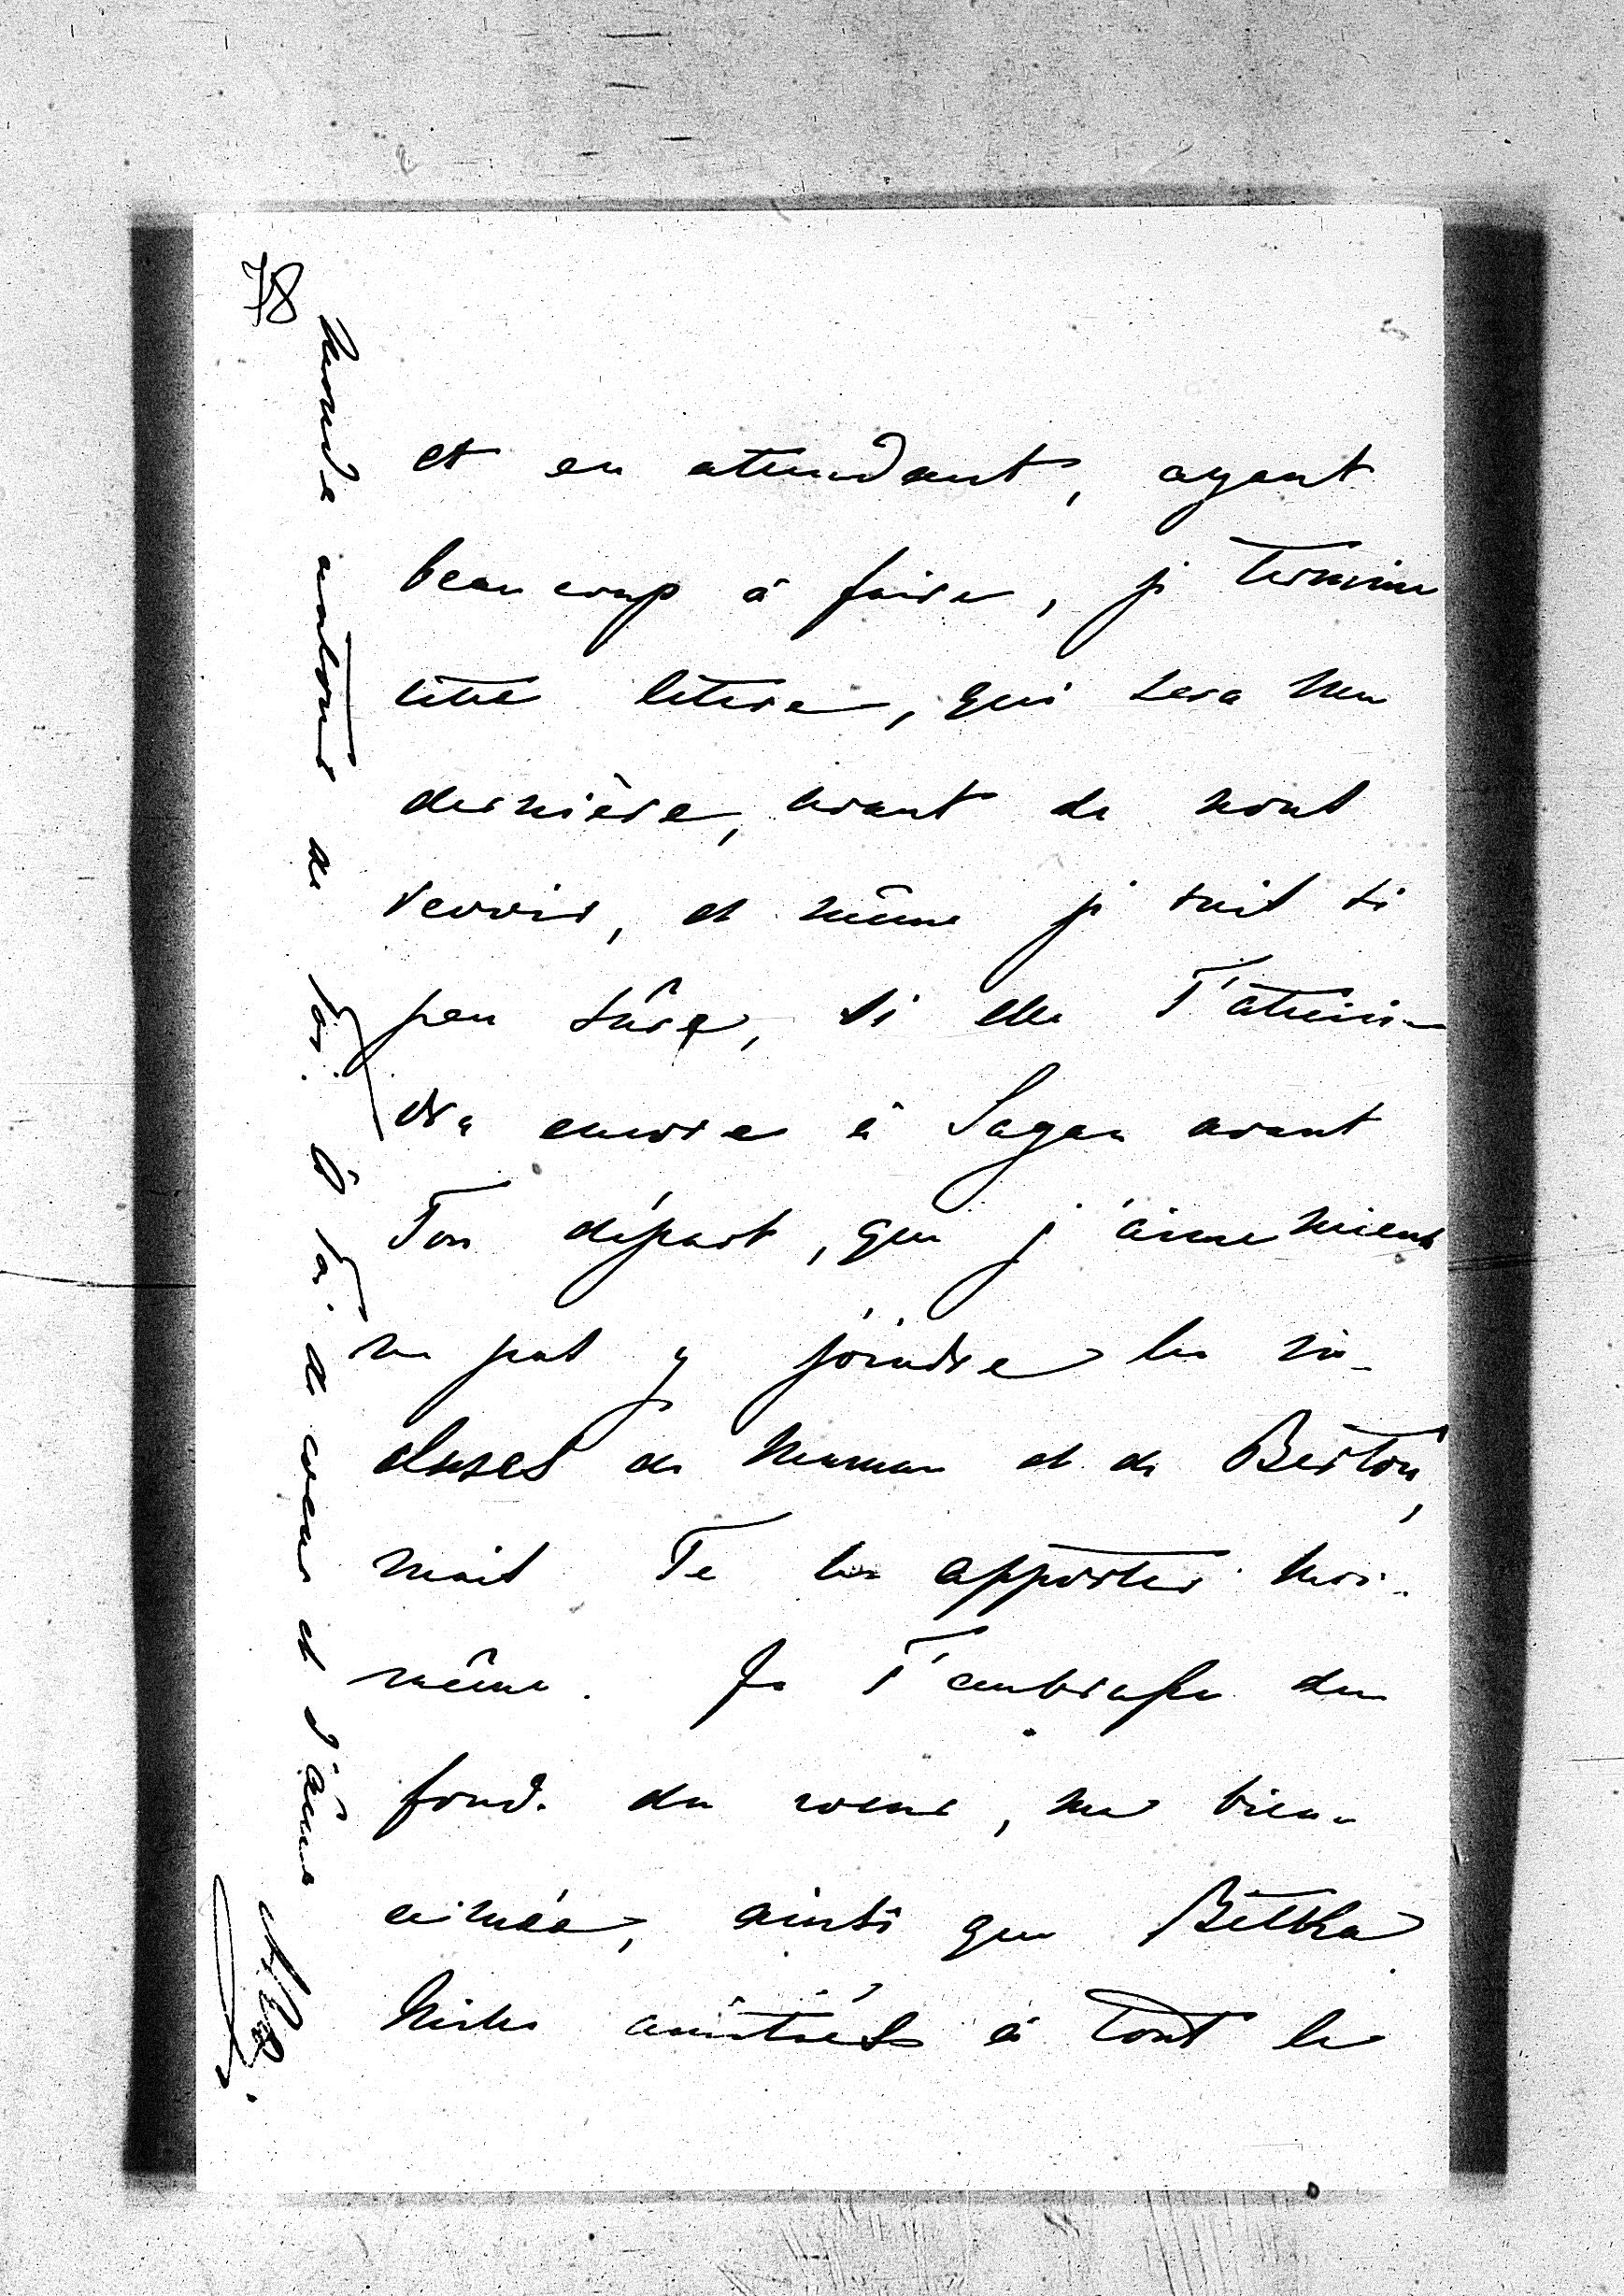 78
et en attendant, ayant
beaucoup à faire, je termine
cette lettre, qui sera ma
dernière, avant de nous
revoir, et même je suis si
peu sûre, si elle T'attein-
dra encore à Sagan avant
Ton départ, que j'aime mieux
ne pas y joindre les in-
cluses de Maman et de Berton,
mais Te les apporter moi-
même. Je T'embrasse du
fond du coeur, ma bien-
aimée, ainsi que Betka
Milles amitiés à tout le
monde autour de Toi. à Toi de coeur et d'âme